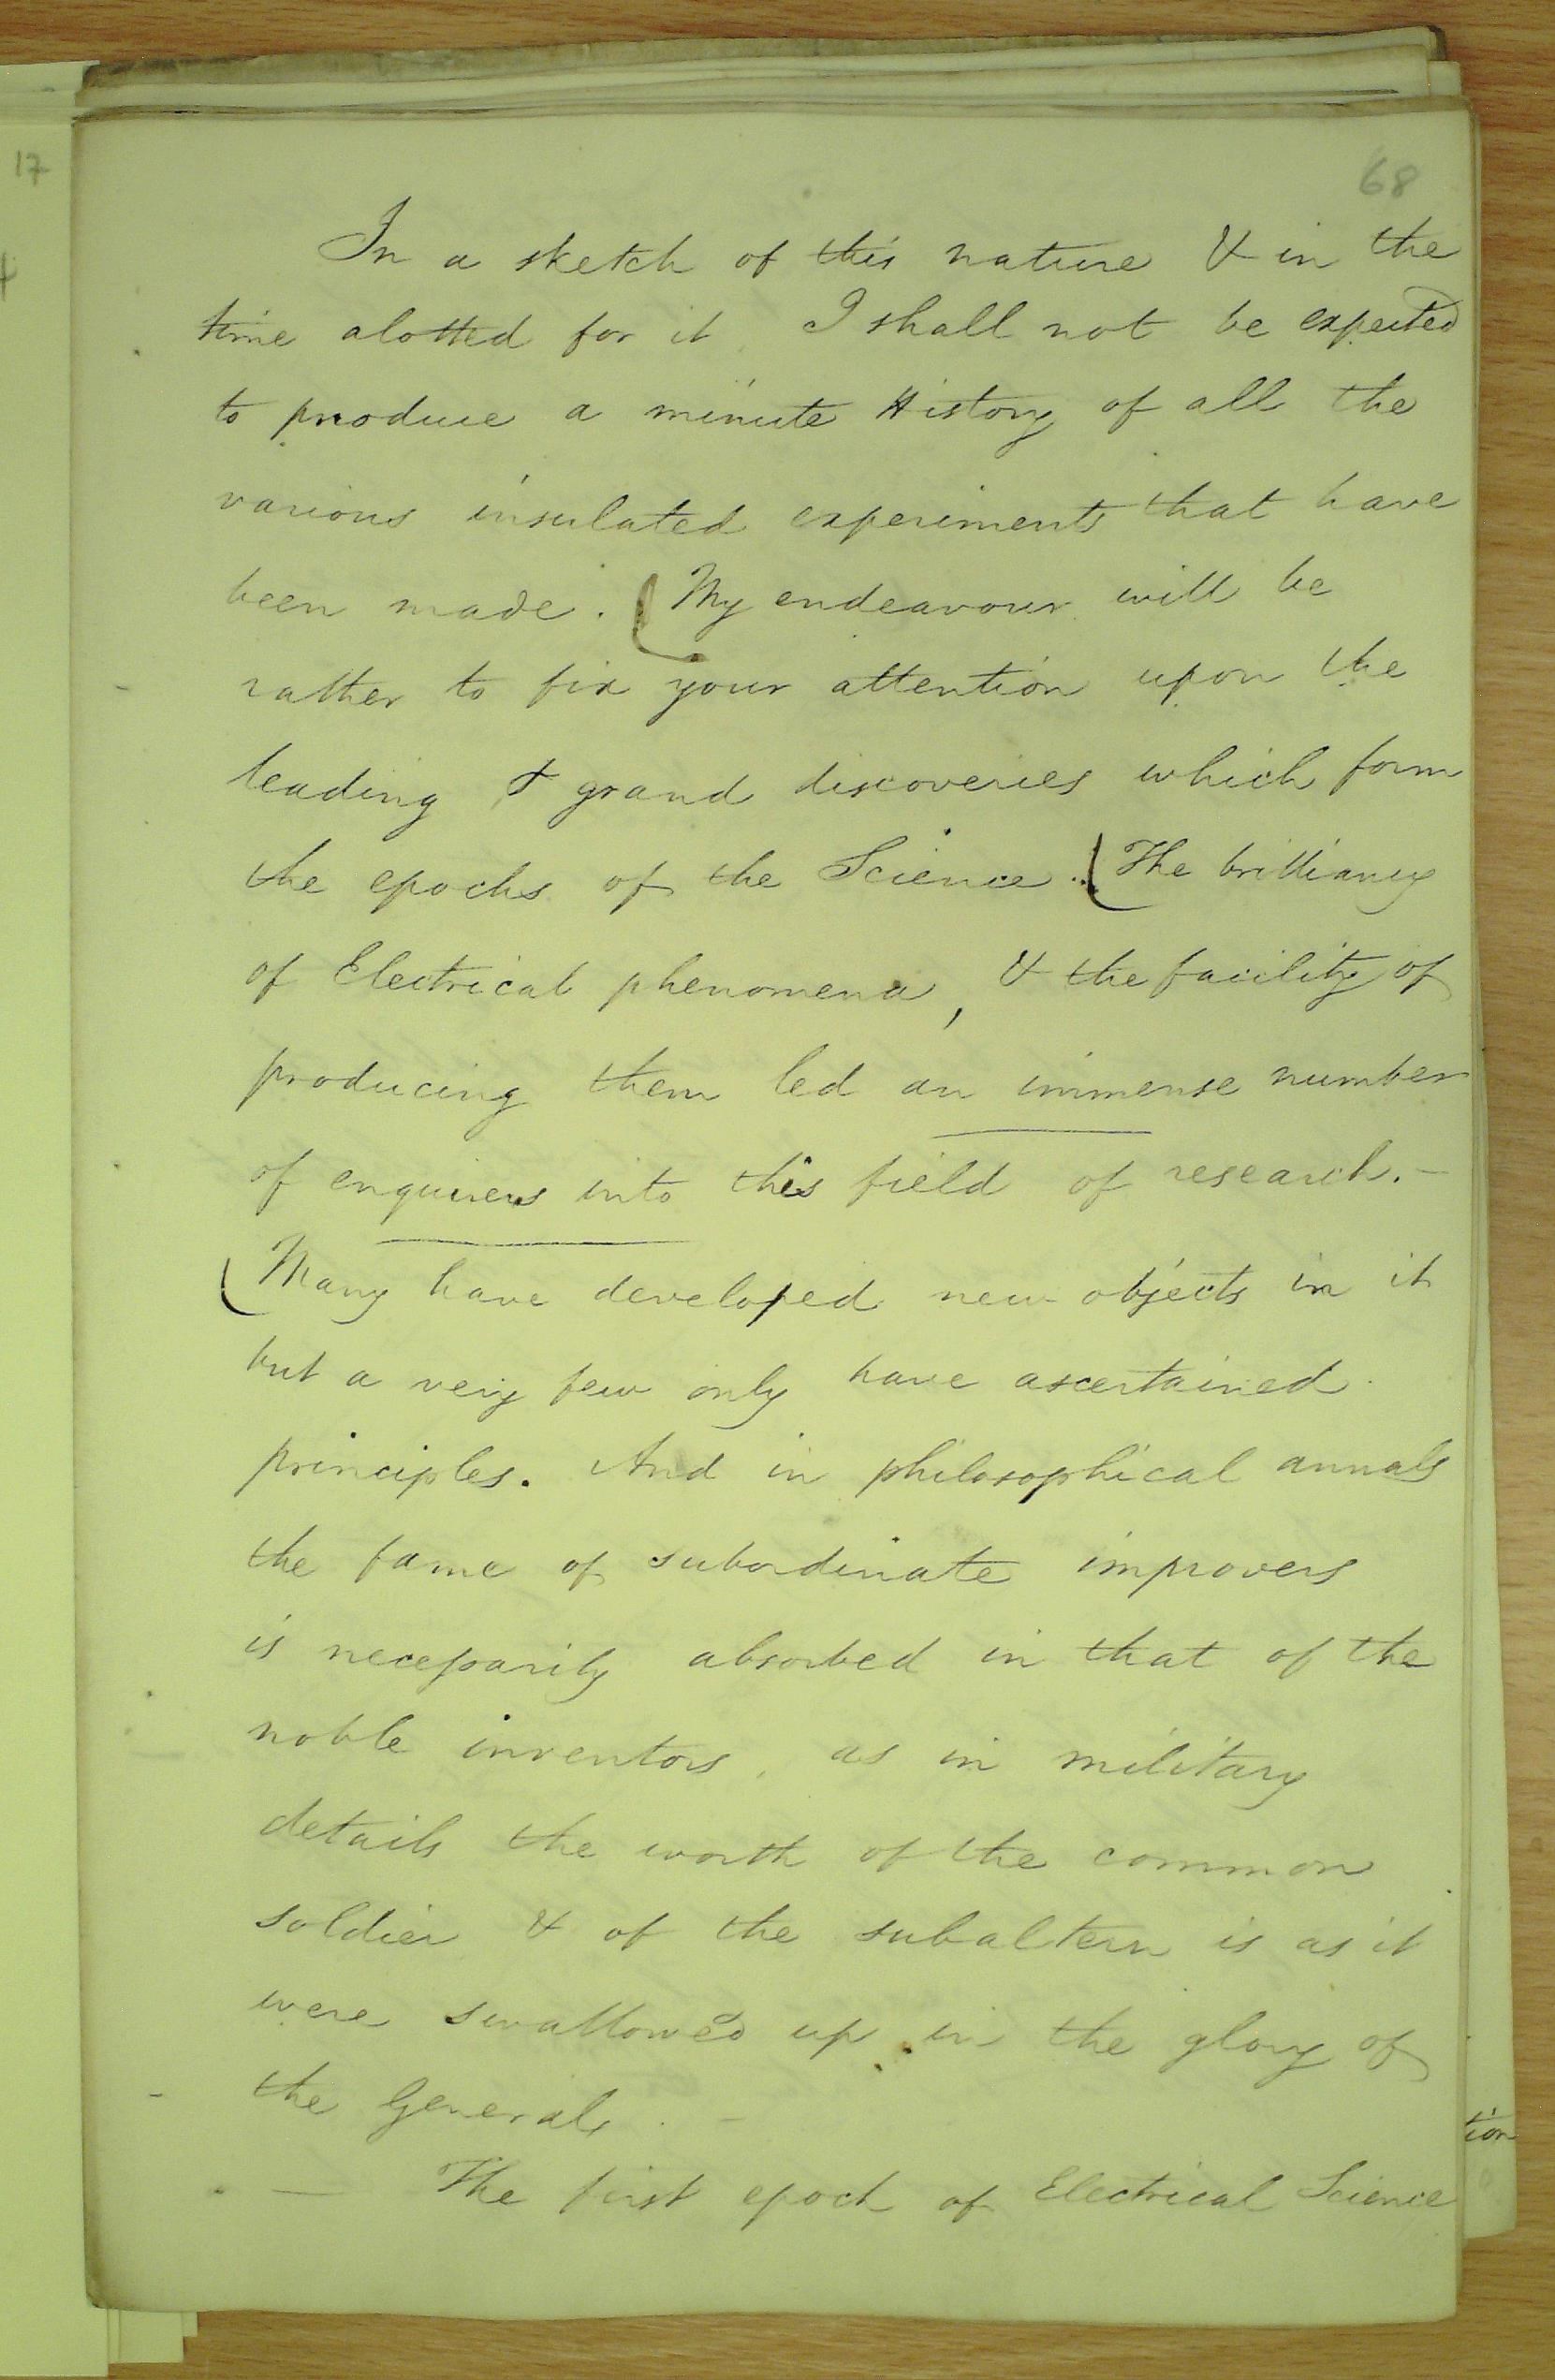 17
68
In a sketch of this nature & in the
time alotted for it I shall not be expected
to produce a minute History of all the
various insulated experiments that have
been made. (My endeavour will be
rather to fix your attention upon the
leading & grand discoveries which form
the epochs of the Science. (The brilliancy
of Electrical phenomena, & the facility of
producing them led an immense number
of enquirers into this field of research. –
(Many have developed new objects in it
but a very few only have ascertained
principles. And in philosophical annals
the fame of subordinate improvers
is necessarily absorbed in that of the
noble inventors, as in military
details the worth of the common
soldier & of the subaltern is as it
were swallowed up in the glory of
the Generals. –
— The first epoch of Electrical Science
tion